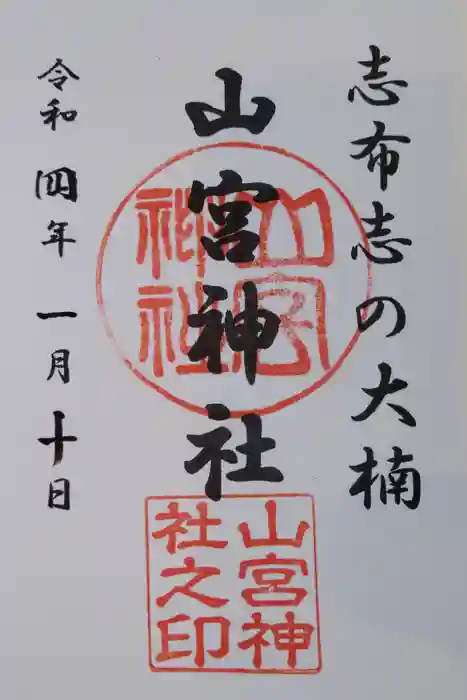 志布志の大楠
山宮神社
令和四年一月十日
山宮神社
山宮神社之印